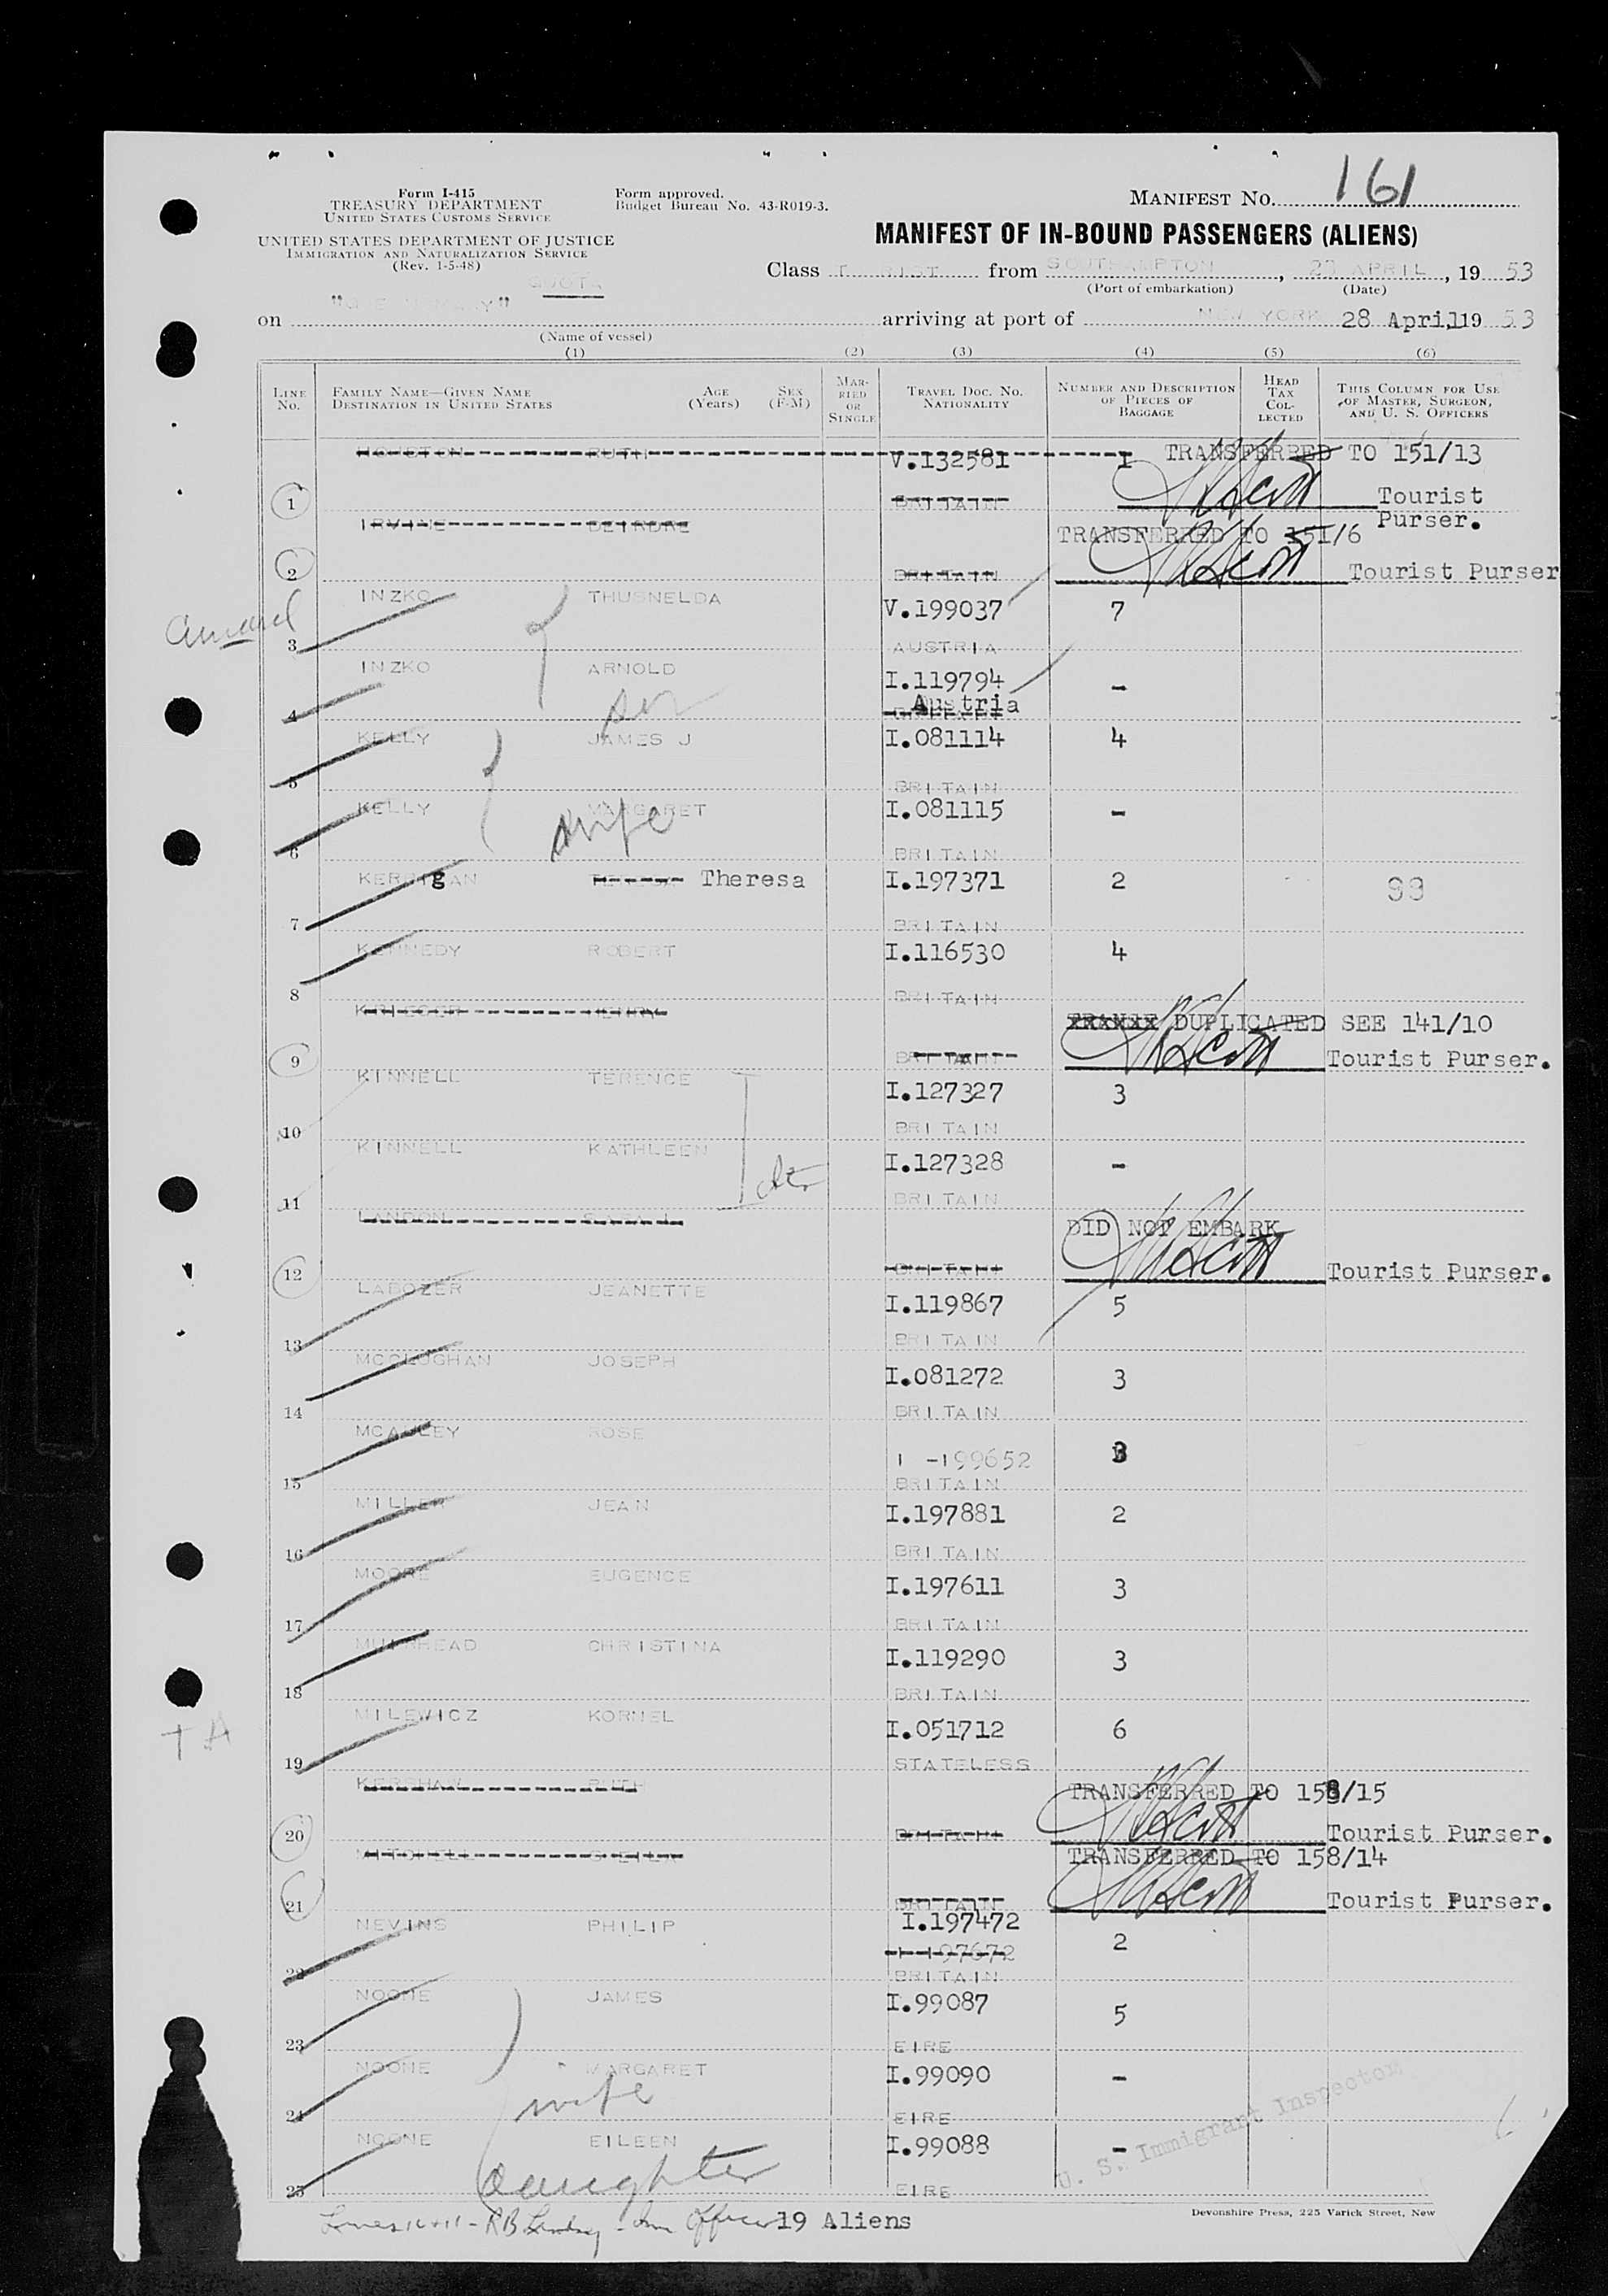 MANIFEST NO. 161
Form I-415
TREASURY DEPARTMENT
UNITED STATES CUSTOMS SERVICE
Form approved.
Budget Bureau No. 43-R019-3.
UNITED STATES DEPARTMENT OF JUSTICE
IMMIGRATION AND NATURALIZATION SERVICE
(Rev. 1-5-48)
MANIFEST OF IN-BOUND PASSENGERS (ALIENS)
Class from SOUTHAMPTON, APRIL, 19 53
(Port of embarkation) (Date)
QUOTA
on arriving at port of NEW YORK 28 April, 19 53
(Name of vessel)
(1) (2) (3) (4) (5) (6)
LINE No. FAMILY NAME—GIVEN NAME DESTINATION IN UNITED STATES AGE (Years) SEX (F-M) MARRIED OR SINGLE TRAVEL DOC. NO. NATIONALITY NUMBER AND DESCRIPTION OF PIECES OF BAGGAGE HEAD TAX COLLECTED THIS COLUMN FOR USE OF MASTER, SURGEON, AND U. S. OFFICERS
HOUSTON RUTH V.132581 1 TRANSFERRED TO 151/13
1 BRITAIN Tourist Purser.
IRVINE DEIRDRE TRANSFERRED TO 151/6
2 BRITAIN Tourist Purser
INZKO THUSNELDA V.199037 7
3 AUSTRIA
INZKO ARNOLD I.119794 -
son
4 Austria
KELLY JAMES J I.081114 4
5 BRITAIN
KELLY MARGARET I.081115 -
wife
6 BRITAIN
KERRIGAN Theresa I.197371 2 99
7 BRITAIN
KENNEDY ROBERT I.116530 4
8 BRITAIN
KRIEGER HENRY DUPLICATED SEE 141/10
9 BRITAIN Tourist Purser.
KINNELL TERENCE I.127327 3
10 BRITAIN
KINNELL KATHLEEN I.127328 -
11 BRITAIN
LANDON DID NOT EMBARK
12 BRITAIN Tourist Purser.
LABOZER JEANETTE I.119867 5
13 BRITAIN
MCCLUGHAN JOSEPH I.081272 3
14 BRITAIN
MCAULEY ROSE I -199652 3
15 BRITAIN
MILLER JEAN I.197881 2
16 BRITAIN
MOORE EUGENCE I.197611 3
17 BRITAIN
MUIRHEAD CHRISTINA I.119290 3
18 BRITAIN
MILEWICZ KORNEL I.051712 6
T A
19 STATELESS
KERSHAW RUTH TRANSFERRED TO 158/15
20 BRITAIN Tourist Purser.
MITCHELL SHEILA TRANSFERRED TO 158/14
21 BRITAIN Tourist Purser.
NEVINS PHILIP I.197472 2
I-197672
22 BRITAIN
NOONE JAMES I.99087 5
23 EIRE
NOONE MARGARET I.99090 -
wife
24 EIRE
NOONE EILEEN I.99088 -
daughter
25 EIRE
U. S. Immigrant Inspector
19 Aliens
Devonshire Press, 225 Varick Street, New